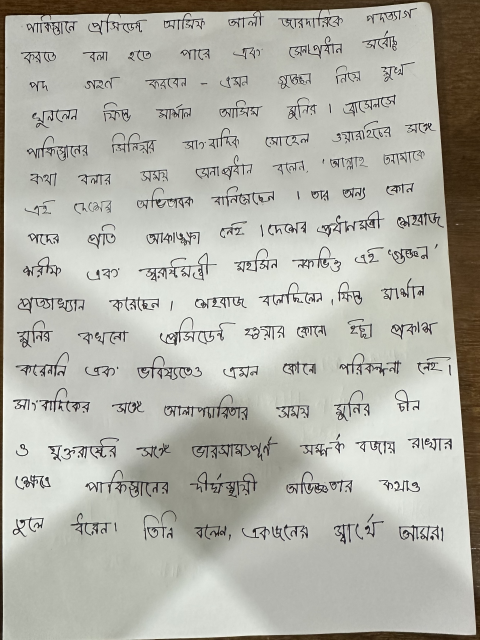 পাকিস্তানে প্রেসিডেন্ট আসিফ আলী জারদারিকে পদত্যাগ
করতে বলা হতে পারে এবং সেনাপ্রধান সর্বোচ্চ
পদ গ্রহণ করবেন - এমন গুঞ্জন নিয়ে মুখ
খুললেন ফিল্ড মার্শাল আসিম মুনির। ব্রাসেলসে
পাকিস্তানের সিনিয়র সাংবাদিক সোহেল ওয়ারাইচের সঙ্গে
কথা বলার সময় সেনাপ্রধান বলেন, 'আল্লাহ আমাকে
এই দেশের অভিভাবক বানিয়েছেন। তার অন্য কোন
পদের প্রতি আকাঙ্ক্ষা নেই। দেশের প্রধানমন্ত্রী শেহবাজ
শরীফ এবং স্বরাষ্ট্রমন্ত্রী মহসিন নকভিও এই 'গুঞ্জন'
প্রত্যাখ্যান করেছেন। শেহবাজ বলেছিলেন, ফিল্ড মার্শাল
মুনির কখনো প্রেসিডেন্ট হওয়ার কোনো ইচ্ছা প্রকাশ
করেননি এবং ভবিষ্যতেও এমন কোনো পরিকল্পনা নেই।
সাংবাদিকের সঙ্গে আলাপচারিতার সময় মুনির চীন
ও যুক্তরাষ্ট্রের সঙ্গে ভারসাম্যপূর্ণ সম্পর্ক বজায় রাখার
ক্ষেত্রে পাকিস্তানের দীর্ঘস্থায়ী অভিজ্ঞতার কথাও
তুলে ধরেন। তিনি বলেন, একজনের স্বার্থে আমরা